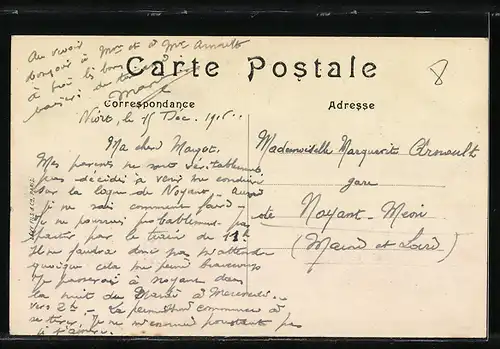 Au revoir
bonjour à Mme et à Mr Arnault
à très les bons
baisers de ton
Marcel
Carte Postale
Correspondance
Adresse
Niort, le 15 Dec. 1915
Ma chere Margot.
Mes parents ne sont véritablement
pas décidés à venir me conduire
sur la ligne de Noyant, aussi
je ne sais comment faire –
Je ne pourrais probablement pas
partir par le train de
Il ne faudra donc pas m'attendre
quoique cela me peine beaucoup
Je passerai à Noyant dans
la nuit du Mardi à Mercredi –
vers 2h – La permission commence à
se tirer, je ne m'ennuie pourtant pas
Mademoiselle Marguerite Arnault
gare
de Noyant-Méon
(Maine et Loire)
8